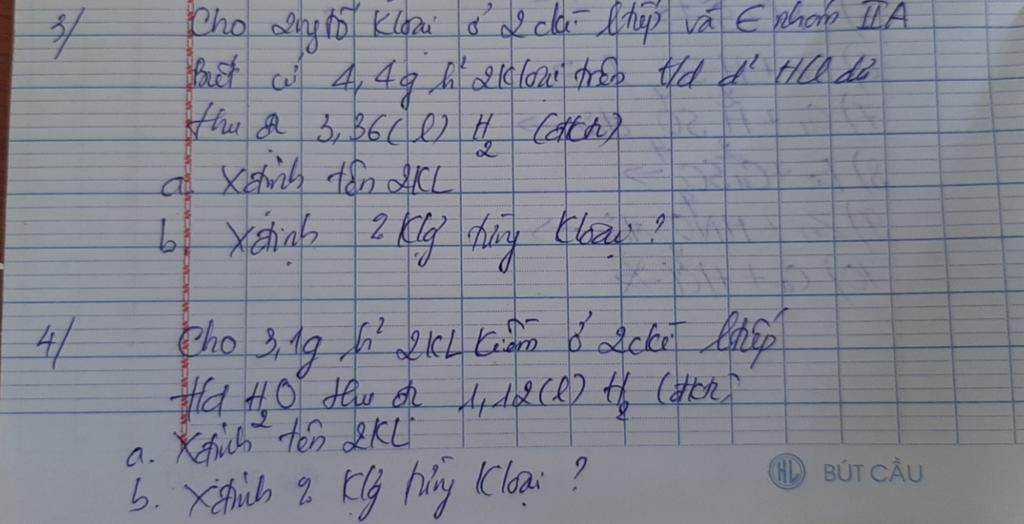 3/ Cho 2 ngtố Kloại ở 2 ckì ltiếp và ∈ nhóm IIA
Biết cứ 4,4g h² 2 Kloại trên t/d d² HCl dư
thu đc 3,36(l) H2 (đktc)
a. Xđịnh tên 2KL
b. Xđịnh 2 Klg từng Kloại?
4/ Cho 3,1g h² 2KL Kiềm ở 2 ckì ltiếp
t/d H2O thu đc 1,12(l) H2 (đktc)
a. Xđịnh tên 2KL
b. Xđịnh 2 Klg từng Kloại?
HL BÚT CẦU